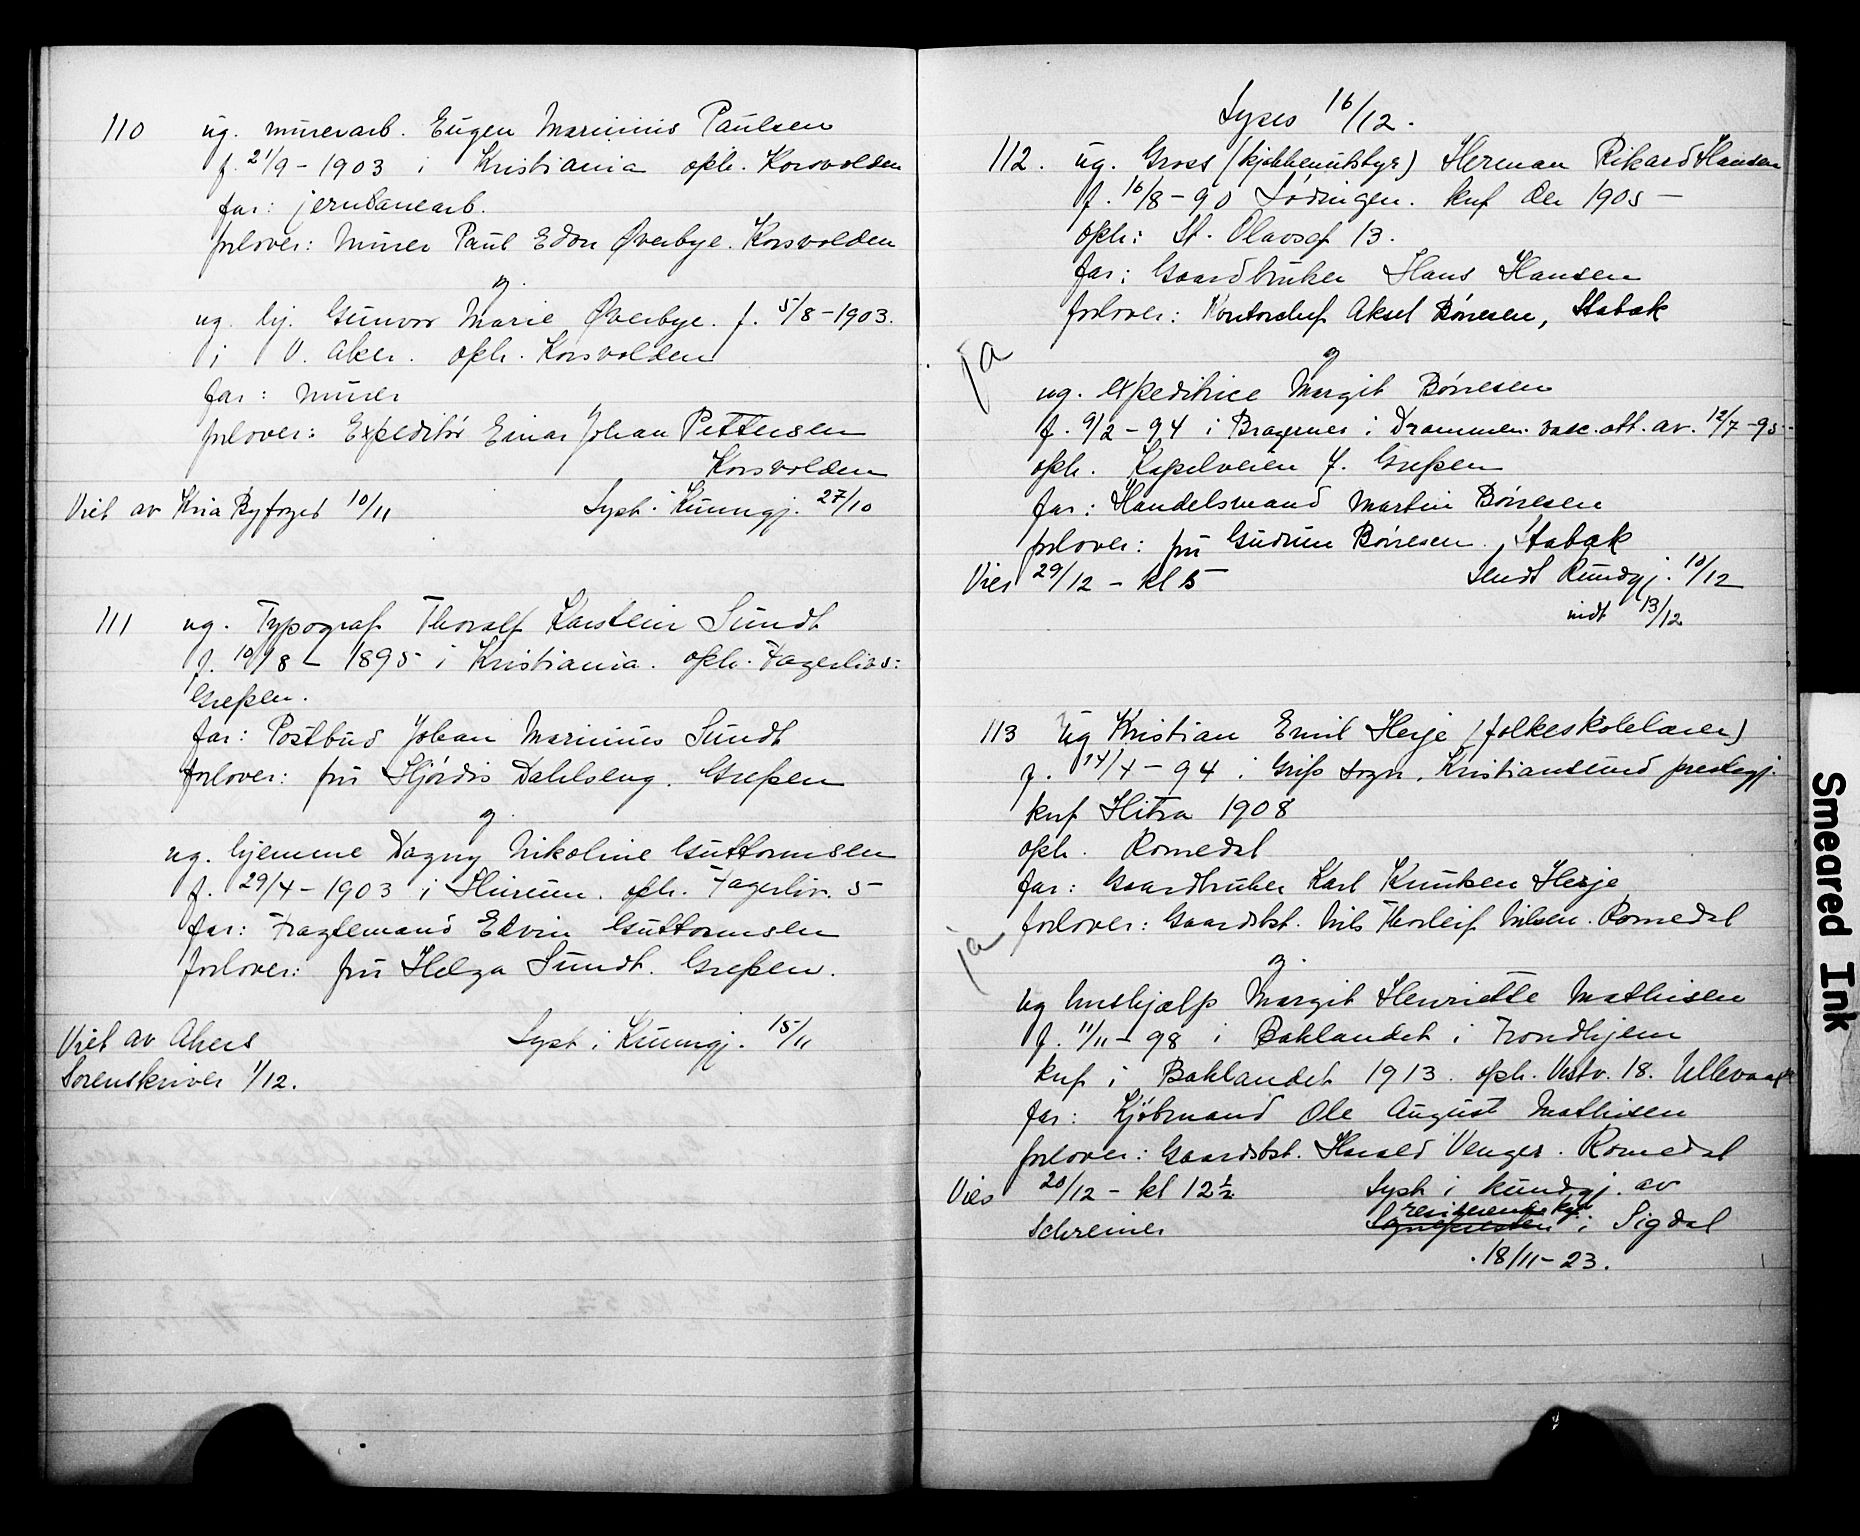 110 ug. murerarb. Eugen Marinius Paulsen
f. 21/9 - 1903 i Kristiania oph. Korsvolden
far: jernbanearb.
forlover: Murer Paul Edon Øverbye. Korsvolden
og.
ug. hj. Gunvor Marie Øverbye. f. 5/8 - 1903.
i V. Aker. oph. Korsvolden
far: murer
forlover: Expeditør Einar Johan Pettersen
Korsvolden
Viet av Kria Byfoged 10/11 Lyst i Kunngj. 27/10
111 ug. Typograf Thoralf Karstein Sundt
f. 10/8 - 1895 i Kristiania. oph. Fagerlivs:
Grefsen.
far: Postbud Johan Marinius Sundt
forlover: fru Hjørdis Dahlseng. Grefsen
og.
ug. hjemme Dagny Nikoline Guttormsen
f. 29/4 - 1903 i Hurum. oph. Fagerliv. 5
far: Fragtemand Edvin Guttormsen
forlover: fru Helga Sundt. Grefsen.
Viet av Akers Lyst i Kunngj. 15/11
Sorenskriver 1/12.
Lyses 16/12.
112. ug. Gross (kjøkkenutstyr) Herman Rikard Hansen
f. 16/8 - 90 Lødingen. knf der 1905 -
oph: St. Olavsgt 13.
far: Gaardbruker Hans Hansen
forlover: Kontorchef Aksel Børresen, Stabæk
ja
og
ug. Expeditrice Margit Børresen
f. 9/2 - 94 i Bragernes i Drammen. vacc. att. av. 12/7 - 95 -
oph. Kapelveien 7. Grefsen
far: Handelsmand Martin Børresen
forlover: fru Gudrun Børresen. Stabæk
Vies 29/12 - kl 5 Sendt Kundgj. 10/12
mdt 13/12
113 ug Kristian Emil Herje (folkeskolelærer)
f. 14/4 - 94 i Grip sogn. Kristiansund prestegj.
knf Hitra 1908
oph. Romedal
far: Gaardbruker Karl Knutsen Herje
forlover: Gaardsbst. Nils Thorleif Nilsen. Romedal
ja
og.
ug hushjælp Margit Henriette Mathisen
f. 11/11 - 98 i Baklandet i Trondhjem
knf i Baklandet 1913. oph. Vestv. 18. Ullevaal
far: Kjøbmand Ole August Mathisen
forlover: Gaardsbst. Harald Venger. Romedal
Vies 20/12 - kl 12 1/2 Lyst i kundgj. av
Schreiner residerende kap. i Sigdal
18/11 - 23.
Smeared Ink